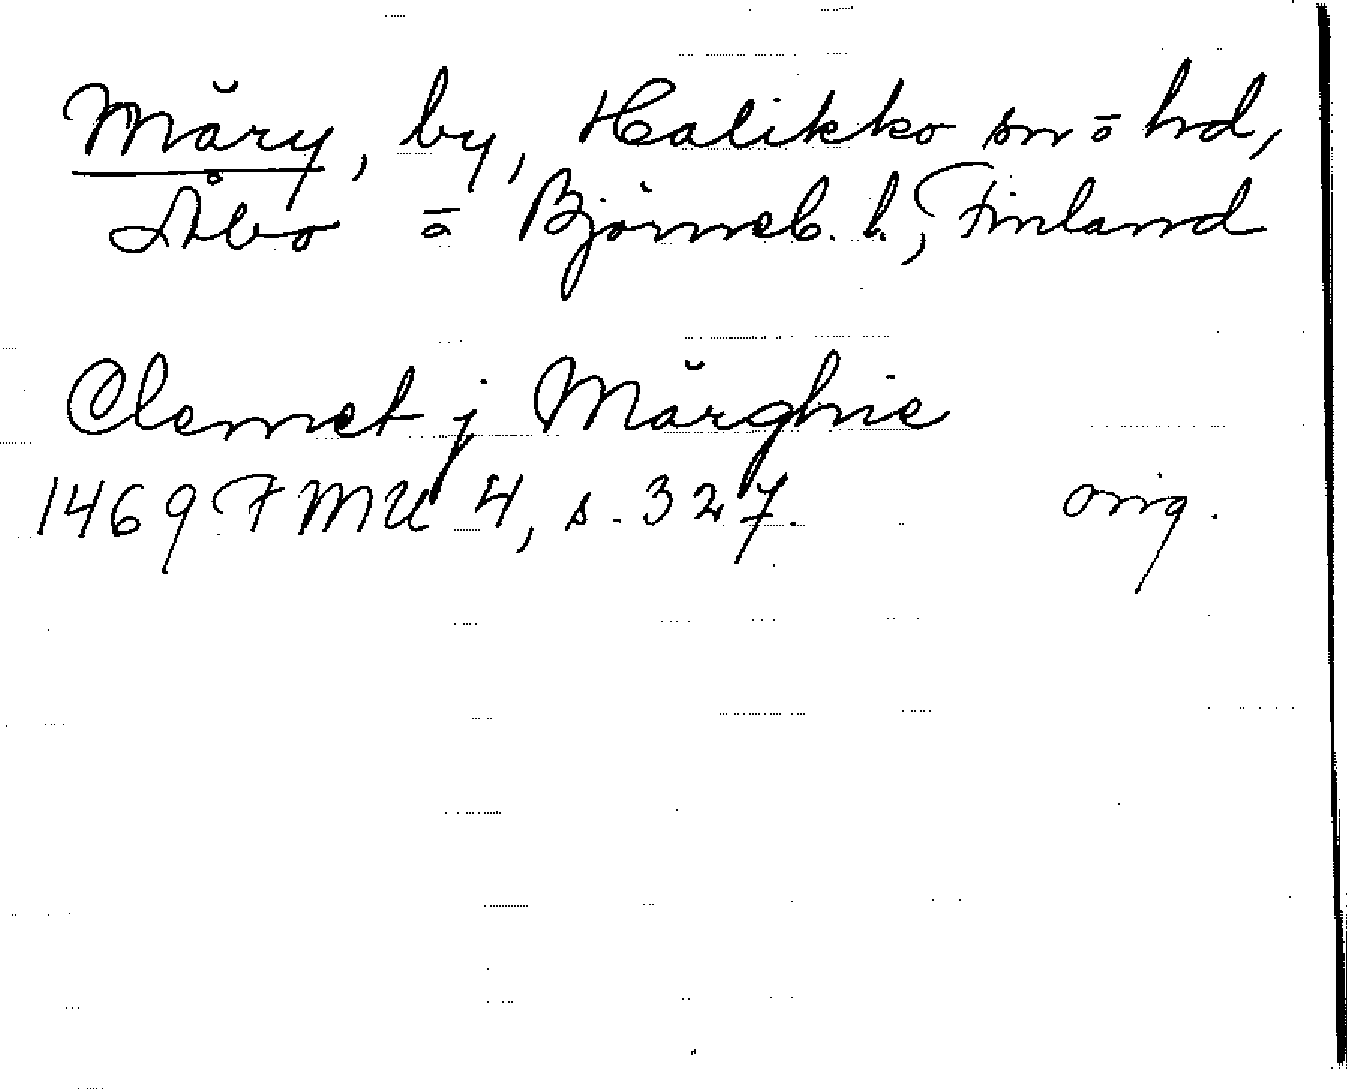 Märy, by, Halikko sn o hd,
Åbo o Björneb. l., Finland
Clemet j Märghie
1469 FMU 4, s. 327. orig.